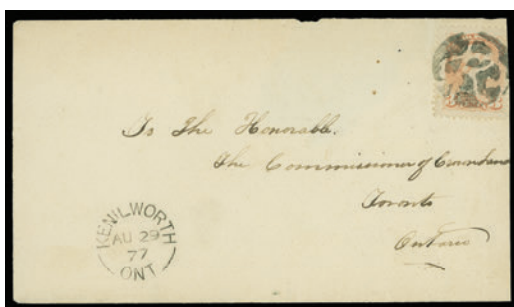 To The Honorable.
The Commissioner of Crown Lands
Toronto
Ontario
KENILWORTH
AU 29
77
ONT